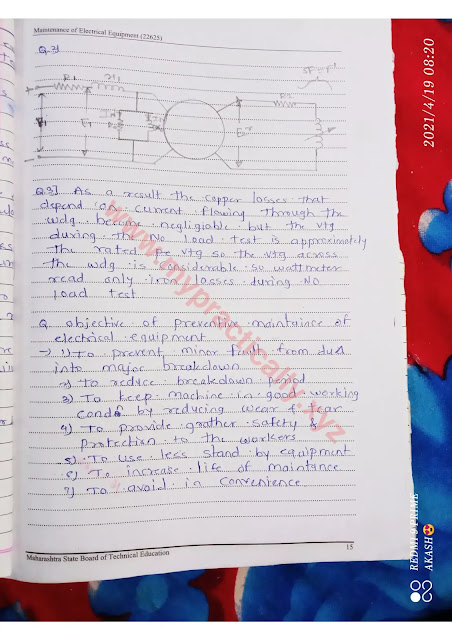 Maintenance of Electrical Equipment (22625)
Q.2]
R1
E1
R2
Q.3] As a result the copper losses that
depend on current flowing through the
wdg become negligiable but the vtg
during the No load test is approximately
the rated vtg so the vtg across
the wdg is considerable so wattmeter
read only iron losses during NO
load test
Q. objective of preventive maintaince of
electrical equipment
→ 1) To prevent minor fault from
into major breakdown
2) To reduce breakdown period
3) To keep machine in good working
by reducing wear & tear
4) To provide grather safety &
protection to the workers
5) To use less stand by equipment
6) To increase life of maintance
7) To avoid in convenience
www.mypractically.xyz
Maharashtra State Board of Technical Education
15
2021/4/19 08:20
REDMI 9 PRIME
AKASH😍